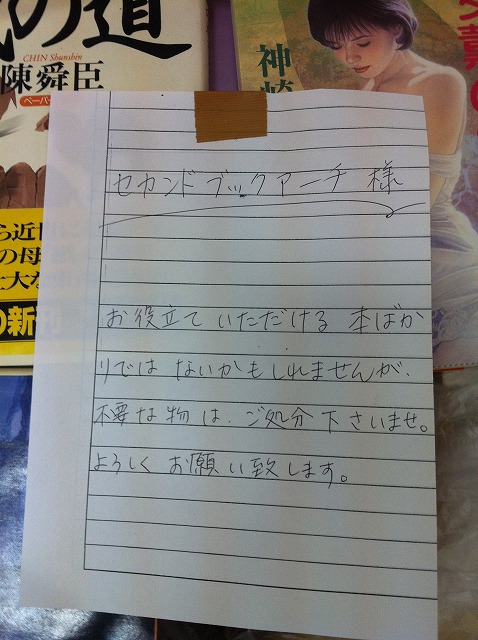 の道
CHIN Shunshin
陳舜臣
神崎
ら近
の母
大な
の新
セカンドブックアーチ 様
お役立ていただける 本ばか
りではないかもしれませんが、
不要な物は、ご処分下さいませ。
よろしくお願い致します。